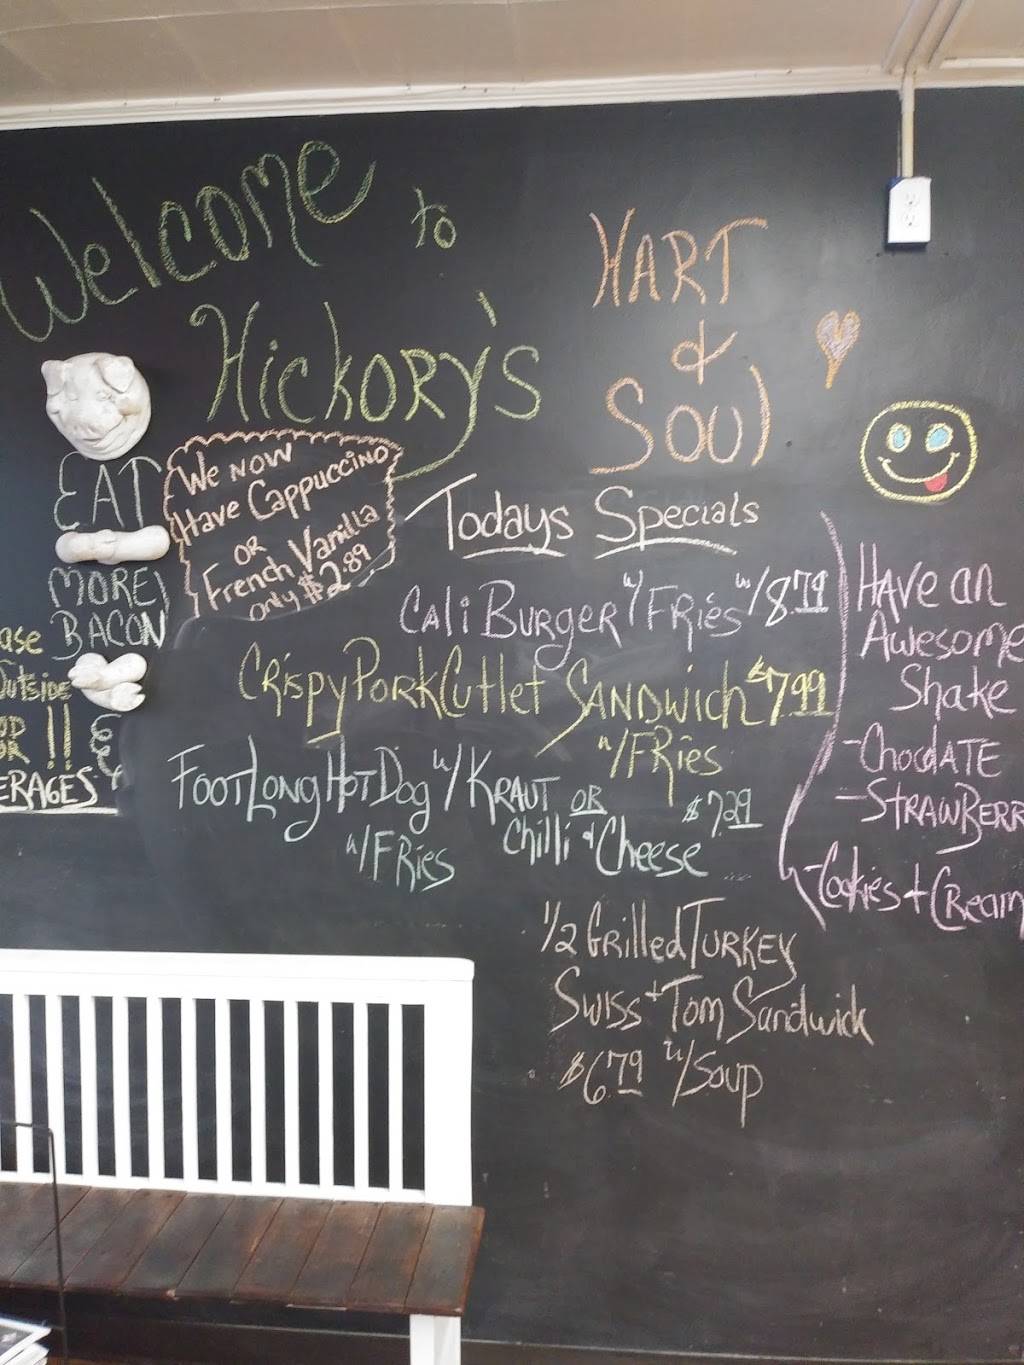 Welcome to
Hickory's
HART
&
Soul
EAT
MORE
BACON
We now
Have Cappuccino
OR
French Vanilla
only $2.89
Todays Specials
Cali Burger w/ FRies 8.79
Crispy Pork Cutlet Sandwich $7.99
w/ FRies
Foot Long Hot Dog w/ KRAUT OR $7.29
Chilli & Cheese
w/ FRies
1/2 Grilled Turkey
Swiss + Tom Sandwick
$6.79 w/ Soup
Have an
Awesome
Shake
- Chocolate
- Strawberr
- Cookies + Cream
ase
outside
!!
ERAGES